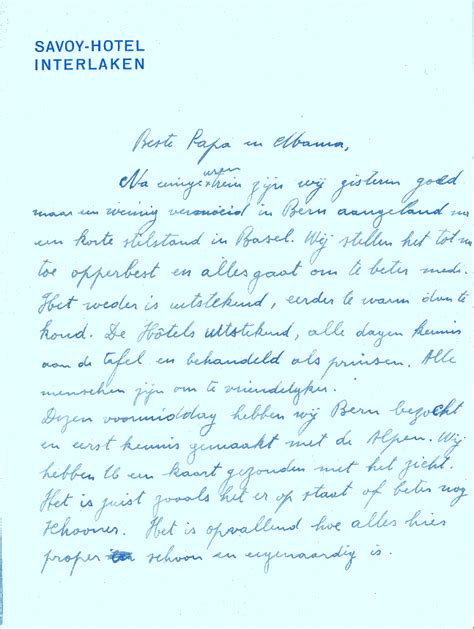 SAVOY-HOTEL
INTERLAKEN
Beste Papa en Mama,
uren
Na eenige trein zijn wij gisteren goed
maar een weinig vermoeid in Bern aangeland na
een korte stilstand in Basel. Wij stellen het tot nu
toe opperbest en alles gaat om te beter mede.
Het weder is uitstekend, eerder te warm dan te
koud. De Hôtels uitstekend, alle dagen kennis
aan de tafel en behandeld als prinsen. Alle
menschen zijn om te vriendelyker.
Dezen voormiddag hebben wij Bern bezocht
en eerst kennis gemaakt met de Alpen. Wij
hebben U een kaart gezonden met het zicht.
Het is juist zooals het er op staat of beter nog
schooner. Het is opvallend hoe alles hier
proper schoon en eigenaardig is.